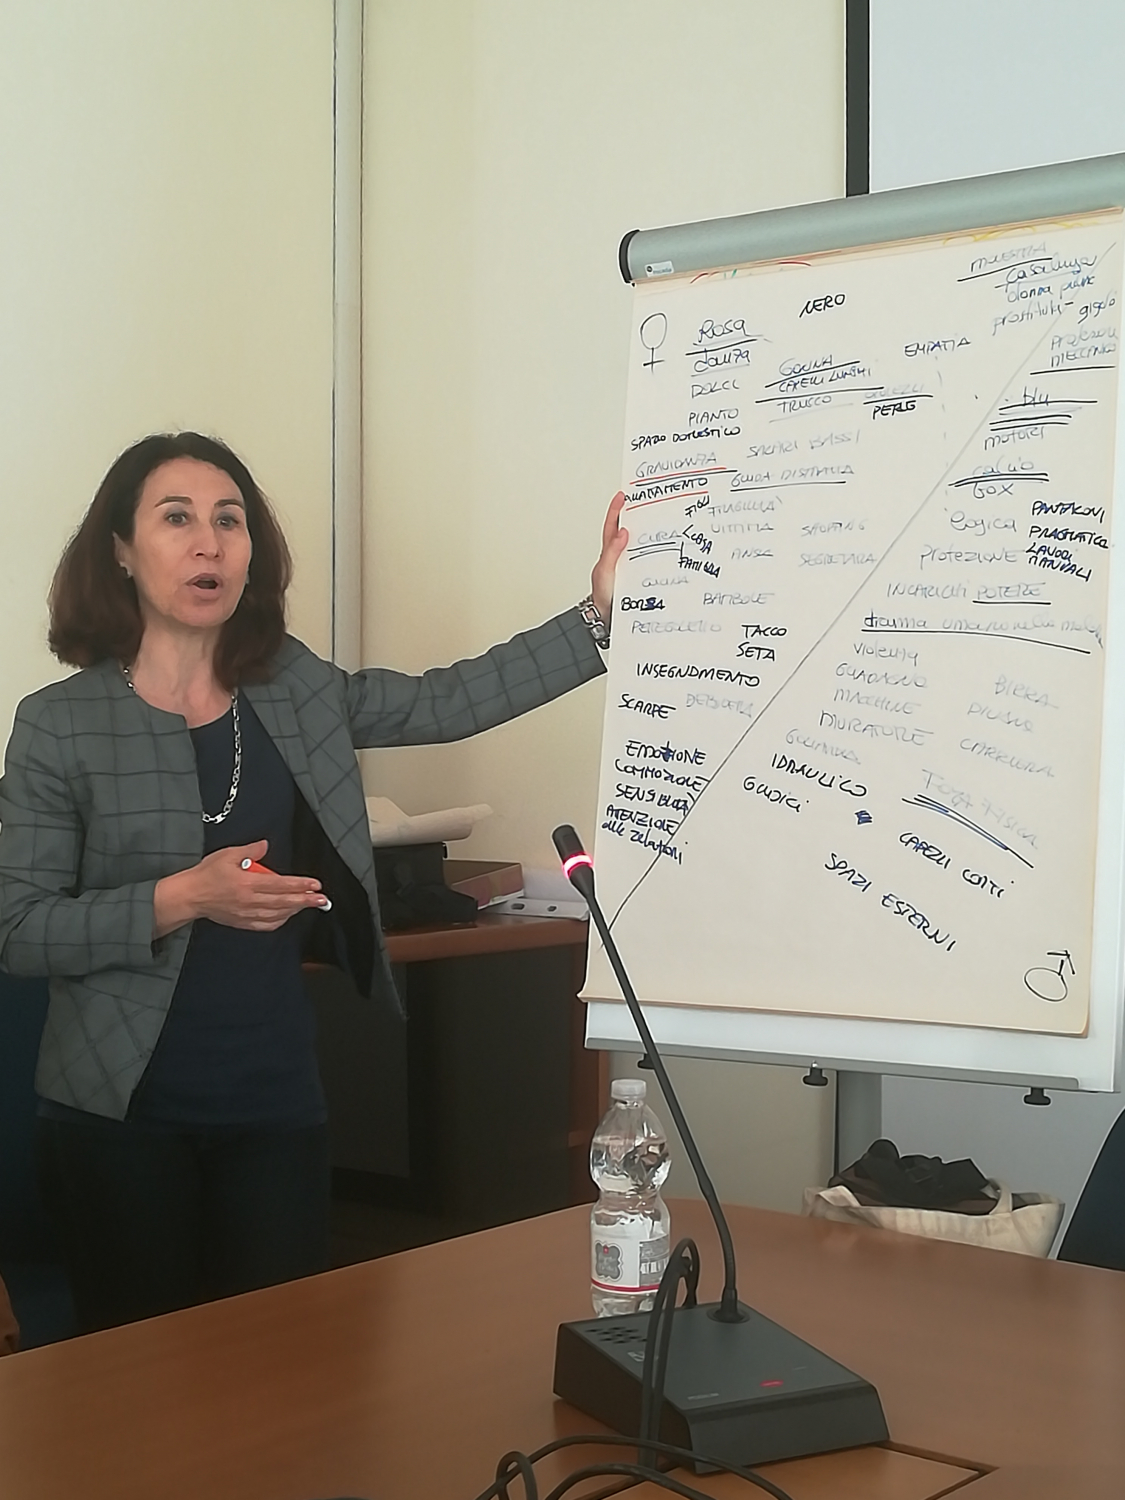 NERO
MOLESTIA
casalinga
donna
prostituta - gigolo
Rosa
danza
DOLCI
PIANTO
SPAZIO DOMESTICO
GRAVIDANZA
ALLATTAMENTO
FIGLI
CURA
CASA
FAMIGLIA
CUCINA
BORSA
PETTEGOLEZZO
INSEGNAMENTO
SCARPE
DEBOLEZZA
EMOZIONE
COMMOZIONE
SENSIBILITÀ
ATTENZIONE
alle relazioni
GONNA
CAPELLI LUNGHI
TRUCCO
GIOIELLI
PERLE
EMPATIA
SALARI BASSI
GUIDA DISTRATTA
FRAGILITA'
VITTIMA
SHOPPING
ANSIA
SEGRETARIA
BAMBOLE
TACCO
SETA
PROFESSIONI
MECCANICO
blu
motori
calcio
BOX
logica
PANTALONI
PRAGMATICO
LAVORI
MANUALI
protezione
INCARICHI POTERE
violenza
GUADAGNO
MACCHINE
MURATORE
BIRRA
DIVANO
CARRIERA
IDRAULICO
GIUDICI
FORZA FISICA
CAPELLI CORTI
SPAZI ESTERNI